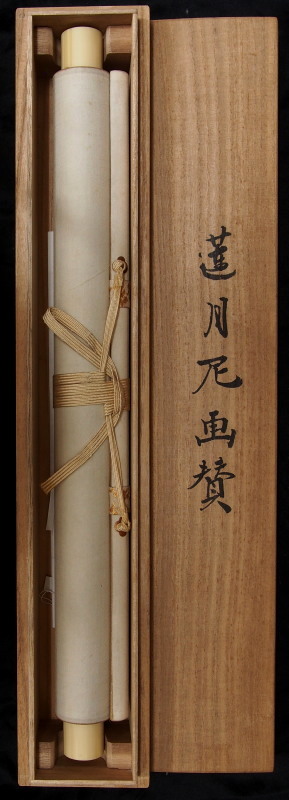 蓮月尼画賛